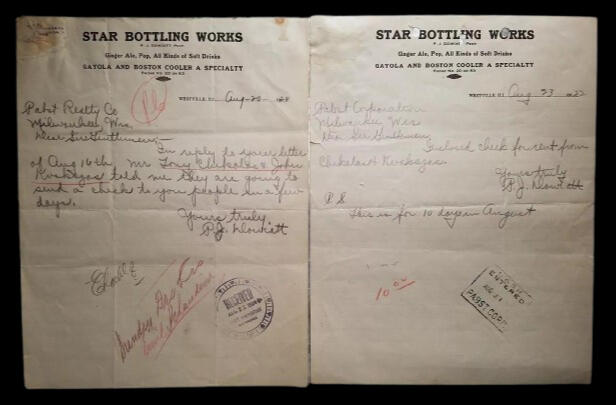 STAR BOTTLING WORKS
P. J. DOWIATT PROP.
Ginger Ale, Pop, All Kinds of Soft Drinks
GAYOLA AND BOSTON COOLER A SPECIALTY
WESTVILLE, ILL.
Pabst Realty Co
Milwaukee, Wis.
Dear Sir Gentlemen:-
In reply to your letter
of Aug 16th Mr Tony & John
told me they are going to
send a check to you people in a few
days.
Yours truly,
P.J. Dowiatt
RECEIVED
STAR BOTTLING WORKS
P. J. DOWIATT PROP.
Ginger Ale, Pop, All Kinds of Soft Drinks
GAYOLA AND BOSTON COOLER A SPECIALTY
WESTVILLE, ILL. Aug 23
Pabst Corporation
Milwaukee Wis
Dear Sir Gentlemen,
Enclosed check for rent from
Yours truly
P.J. Dowiatt
P S
This is for 10 days in August
10 00
ENTERED
AUG 24
PABST CORP.